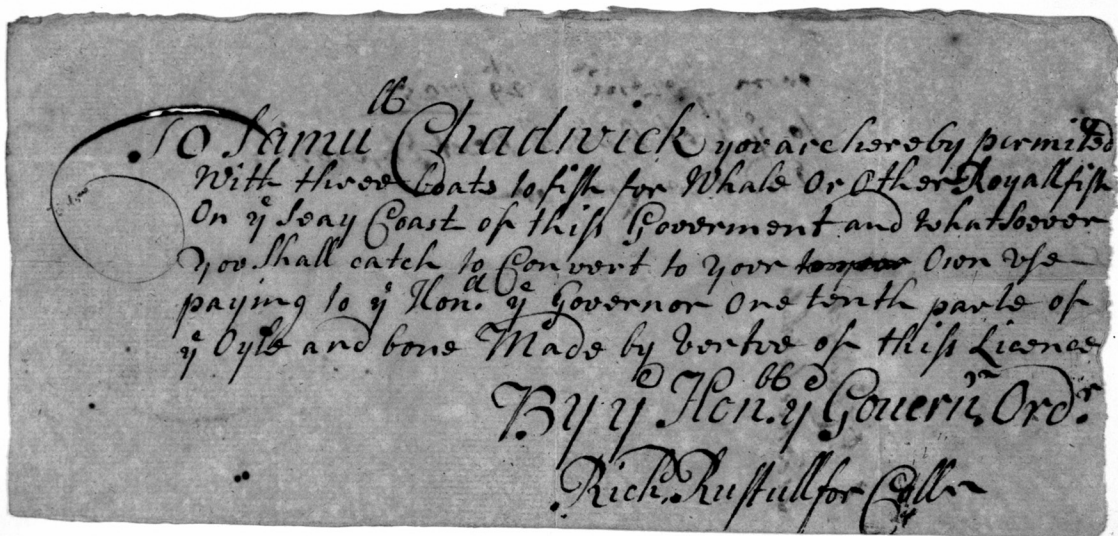 To Samu^ll Chadwick you are hereby permited
With three boats to fish for Whale Or Other Royall fish
On y^e Seay Coast of this Goverment and whatsoever
you Shall catch to Convert to your Own Vse
paying to y^e Hon^ble y^e Governor One tenth parte of
y^e Oyle and bone Made by vertue of this Licence
By y^e Hon^ble y^e Gouern^rs Ord^r
Rich^d Rustull for Coll^r